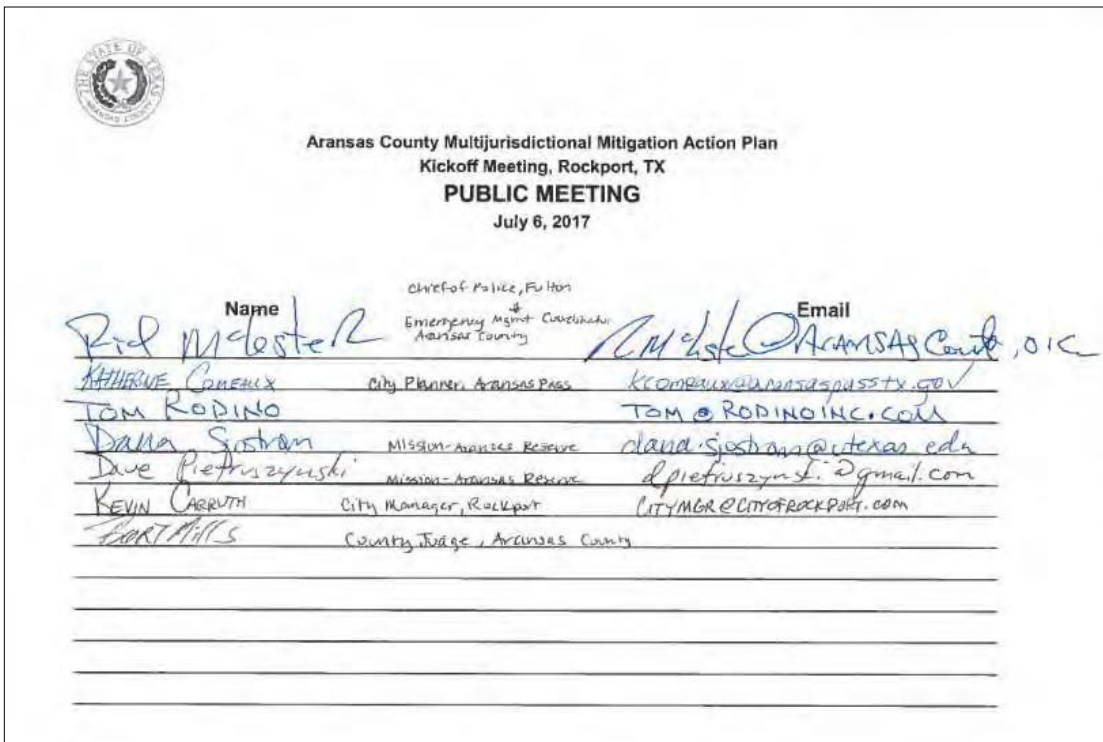 THE STATE OF TEXAS
ARANSAS COUNTY
Aransas County Multijurisdictional Mitigation Action Plan
Kickoff Meeting, Rockport, TX
PUBLIC MEETING
July 6, 2017
Name Email
Chief of Police, Fulton
&
Emergency Mgmt Coordinator
Aransas County
KATHERINE COMEAUX City Planner, Aransas Pass kcomeaux@aransaspasstx.gov
TOM RODINO TOM@RODINOINC.COM
Dana Sjostrom Mission-Aransas Reserve dana.sjostrom@utexas.edu
Dave Pietruszynski Mission-Aransas Reserve dpietruszynski@gmail.com
KEVIN CARRUTH City Manager, Rockport CITYMGR@CITYOFROCKPORT.COM
Mills County Judge, Aransas County